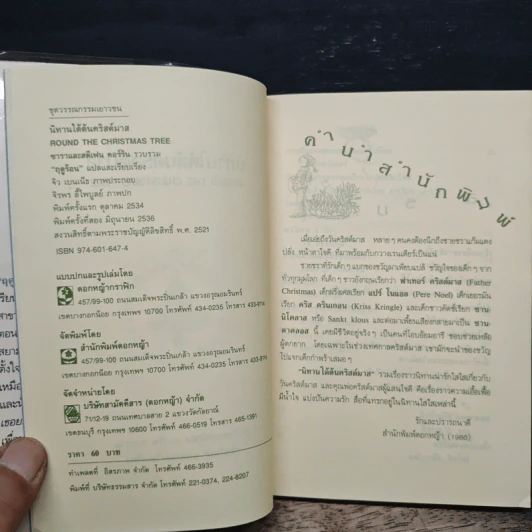 ชุดวรรณกรรมเยาวชน
นิทานใต้ต้นคริสต์มาส
ROUND THE CHRISTMAS TREE
ซาราและสตีเฟน คอร์ริน รวบรวม
"ฤดูร้อน" แปลและเรียบเรียง
จิว เบนเน็ธ ภาพประกอบ
จิรพร ลี้ไพบูลย์ ภาพปก
พิมพ์ครั้งแรก ตุลาคม 2534
พิมพ์ครั้งที่สอง มิถุนายน 2536
สงวนลิขสิทธิ์ตามพระราชบัญญัติลิขสิทธิ์ พ.ศ. 2521
ISBN 974-601-647-4
แบบปกและรูปเล่มโดย
ดอกหญ้ากราฟิก
457/99-100 ถนนสมเด็จพระปิ่นเกล้า แขวงอรุณอมรินทร์
เขตบางกอกน้อย กรุงเทพฯ 10700 โทรศัพท์ โทรสาร
จัดพิมพ์โดย
สำนักพิมพ์ดอกหญ้า
457/99-100 ถนนสมเด็จพระปิ่นเกล้า แขวงอรุณอมรินทร์
เขตบางกอกน้อย กรุงเทพฯ 10700 โทรศัพท์ โทรสาร
จัดจำหน่ายโดย
บริษัทสามัคคีสาร (ดอกหญ้า) จำกัด
71/12-19 ถนนเทศบาลสาย 2 แขวงวัดกัลยาณ์
เขตธนบุรี กรุงเทพฯ 10600 โทรศัพท์ 466-0519 โทรสาร 465-1391
ราคา 60 บาท
ทำเพลตที่ อิสรภาพ จำกัด โทรศัพท์ 466-3935
พิมพ์ที่ บริษัทธรรมสาร จำกัด โทรศัพท์ 221-0374, 224-8207
คำนำสำนักพิมพ์
เมื่อเอ่ยถึงวันคริสต์มาส หลายๆ คนคงต้องนึกถึงชายชราแก้มแดง
ปลั่ง หน้าตาใจดี ที่มาพร้อมกับกวางเรนเดียร์เป็นแน่
ชายชราที่รักเด็กๆ แบกของขวัญมาเพียบแปล้ ขวัญใจของเด็กๆ จาก
ทั่วทุกมุมโลก ที่เด็กๆ ชาวอังกฤษเรียกว่า ฟาเทอร์ คริสต์มาส (Father
Christmas) เด็กฝรั่งเศสเรียก แปร์ โนแอล (Pere Noel) เด็กเยอรมัน
เรียก คริส ครินเกอน (Kriss Kringle) และเด็กชาวดัตช์ที่เรียก ซาน-
นิโคลาส หรือ Sankt klous และต่อมาเพี้ยนเสียงกลายมาเป็น ซาน-
ตาคลอส นี้ เคยมีชีวิตอยู่จริงๆ เป็นคนที่โอบอ้อมอารี ชอบช่วยเหลือ
ผู้ตกยาก โดยเฉพาะในช่วงเทศกาลคริสต์มาส เขามักจะนำของขวัญ
ไปแจกเด็กกำพร้าเสมอๆ
"นิทานใต้ต้นคริสต์มาส" รวมเรื่องราวนิทานน่ารักใสใสเกี่ยวกับ
วันคริสต์มาส และคุณพ่อคริสต์มาสผู้แสนใจดี คือเรื่องราวความเอื้อเฟื้อ
มีน้ำใจ แบ่งปันความรัก สื่อที่แทรกอยู่ในนิทานใสใสเหล่านี้
รักและปรารถนาดี
สำนักพิมพ์ดอกหญ้า
(1988)